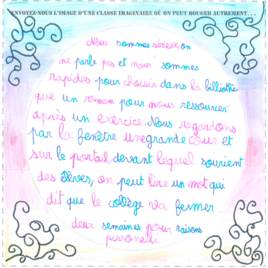 ENVOYEZ-NOUS L'IMAGE D'UNE CLASSE IMAGINAIRE OÙ ON PEUT BOUGER AUTREMENT...
Nous sommes sérieux on
ne parle pas et nous sommes
rapides pour choisir dans la bibliothè
que un roman pour nous ressourcer
après un exercice. Nous regardons
par la fenêtre une grande cour et
sur le portail devant lequel sourient
des élèves, on peut lire un mot qui
dit que le collège va fermer
deux semaines pour raisons